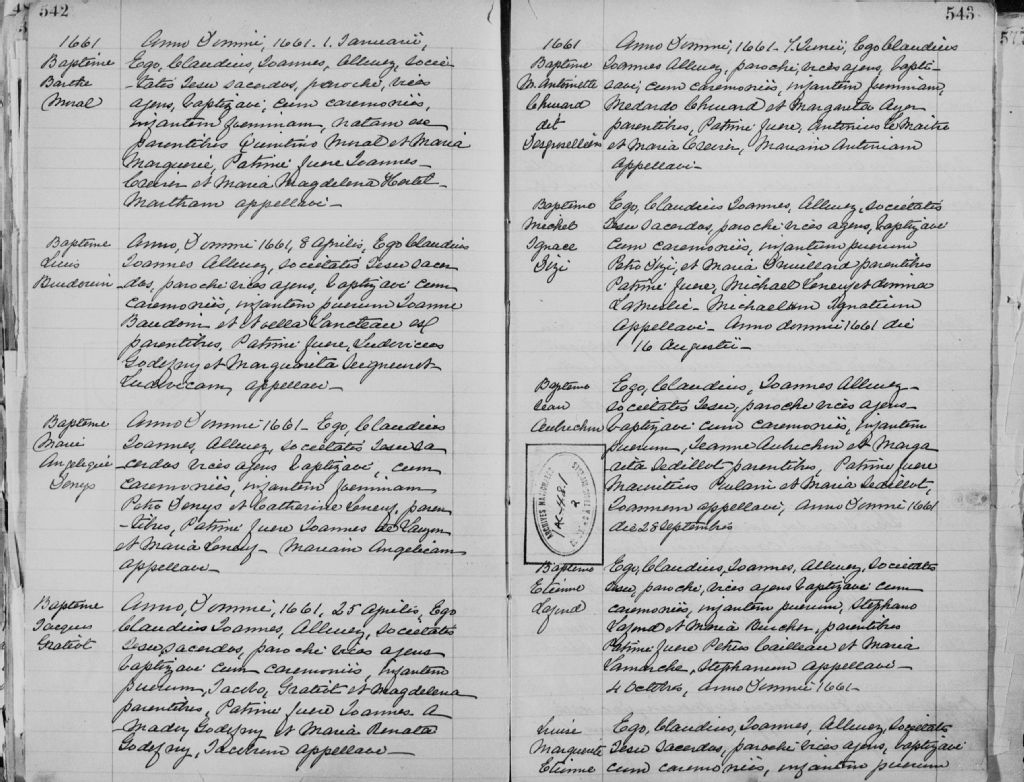 542
1661
Baptême
Barthe
Moral
Anno Domini, 1661. 1. Januarii,
Ego, Claudius, Joannes, Allouez, socie-
-tatis Jesu sacerdos, parochi, vices
agens, baptizavi, cum caremoniis,
infantem foeminiam, natam ex
parentibus Quintino Moral et Maria
Marguerie, Patrini fuere Joannes
Crevier et Maria Magdelena Hertel-
Martham appellavi-
Baptême
Louis
Baudouin
Anno, Domini 1661, 8 Aprilis, Ego Claudius
Joannes Allouez, societatis Jesu sacer
dos, parochi vices agens, baptizavi cum
caremoniis, infantem puerum Joanne
Baudoin et Lancteau ex
parentibus, Patrini fuere, Ludovicus
Godefroy et Marguarita
Ludovicum, appellavi-
Baptême
Marie
Angelique
Denys
Anno Domini 1661- Ego, Claudius
Joannes, Allouez, societatis Jesu sa
cerdos vices agens baptizavi, cum
caremoniis, infantem foeminiam
Petro Denys et Catherine Leneuf, paren
-tibus, Patrini fuere Joannes de Lauzon
et Maria Leneuf- Mariam Angelicam
appellavi-
Baptême
Jacques
Gratiot
Anno, Domini, 1661, 25 Aprilis, Ego
Claudius Joannes, Allouez, societatis
Jesu sacerdos, parochi vices agens
baptizavi cum caremoniis, infantem
puerum, Jacobo, Gratiot et Magdelena
parentibus, Patrini fuere Joannes A
Madry Godefroy et Maria Renata
Godefroy, Jacobum appellavi-
543
1661
Baptême
M. Antoinette
Chouard
dit
Desgroselliers
Anno Domini, 1661- 7. Junii, Ego Claudius
Joannes Allouez, parochi, vices agens, bapti-
-savi, cum caremoniis, infantem foeminiam,
Medardo Chouard et Margarita Ayer
parentibus, Patrini fuere, Antonius le Maitre
et Maria Crevier, Mariam Antoniam
appellavi-
Baptême
Michel
Ignace
Dizi
Ego, Claudius Joannes, Allouez, societatis
Jesu sacerdos, parochi vices agens, baptizavi
cum caremoniis, infantem puerum
Petro Dizi, et Maria Drouillard parentibus
Patrini fuere, Michael Leneuf et domina
LaMeslé- Michaelem Ignatium
Appellavi- Anno domini 1661 die
16 Augustii-
Baptême
Jean
Aubuchon
Ego, Claudius, Joannes Allouez-
societatis Jesu, parochi vices agens-
baptizavi cum caremoniis, infantem
puerum, Jeanne Aubuchon et Marga
arita Sedillot parentibus, Patrini fuere
Mauritius Pulani et Maria Sedillot,
Joannem appellavi, Anno Domini 1661
die 28 Septembris
ARCHIVES NATIONALES
Baptême
Etienne
Lafond
Ego, Claudius, Joannes, Allouez, Societatis
Jesu, parochi, vices agens baptizavi cum
caremoniis, infantem puerum, Stephano
Lafond et Maria Bucher, parentibus
Patrini fuere Petrus Cailleau et Maria
Lamarche, Stephanum appellavi-
4 Octobris, anno Domini 1661-
Louise
Marguerite
Etienne
Ego, Claudius, Joannes, Allouez, Societatis
Jesu sacerdos, parochi vices agens, baptizavi
cum caremoniis, infantem puerum
577